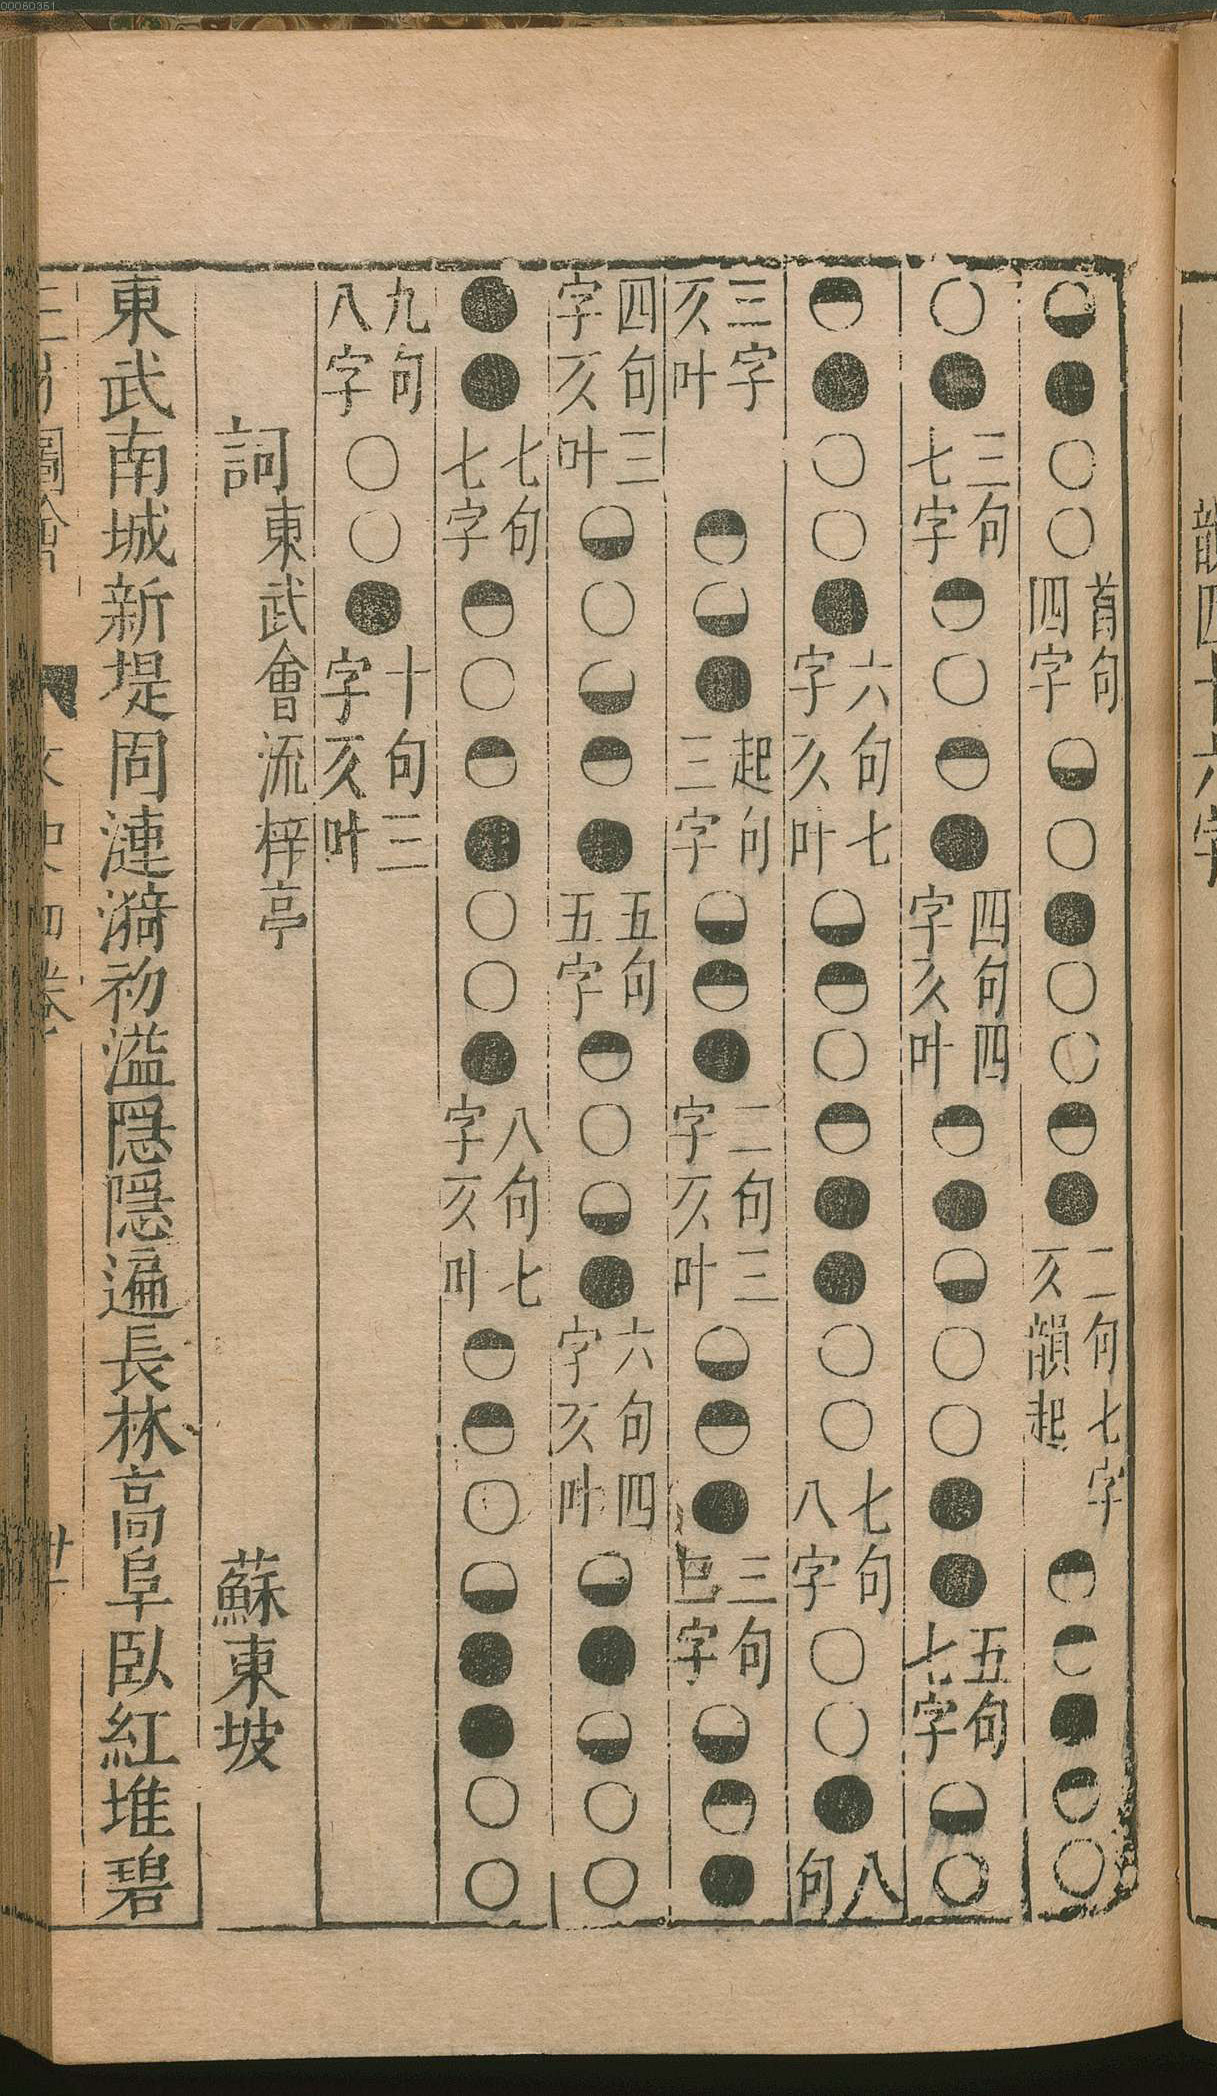 00060351
首句四字 二句七字仄韻起
三句七字 四句四字仄叶 五句七字
六句七字仄叶 七句八字 八句
三字仄叶 起句三字 二句三字仄叶 三句四字
四句三字仄叶 五句五字 六句四字仄叶
七句七字 八句七字仄叶
九句八字 十句三字仄叶
詞 東武會流梓亭 蘇東坡
東武南城新堤固漣漪初溢隱隱遍長林高阜臥紅堆碧
三才圖會